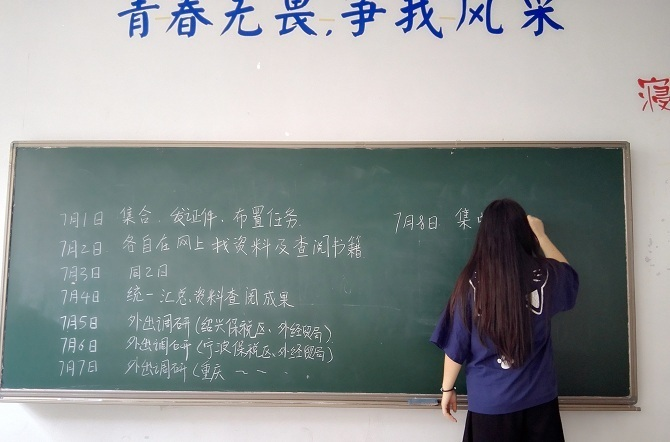 青春无畏,争我风采
寝
7月1日 集合、发证件、布置任务
7月2日 各自在网上找资料及查阅书籍
7月3日 同2日
7月4日 统一汇总、资料查阅成果
7月5日 外出调研(绍兴保税区、外经贸局)
7月6日 外出调研(宁波保税区、外经贸局)
7月7日 外出调研(重庆 ~ ~ 、
7月8日 集